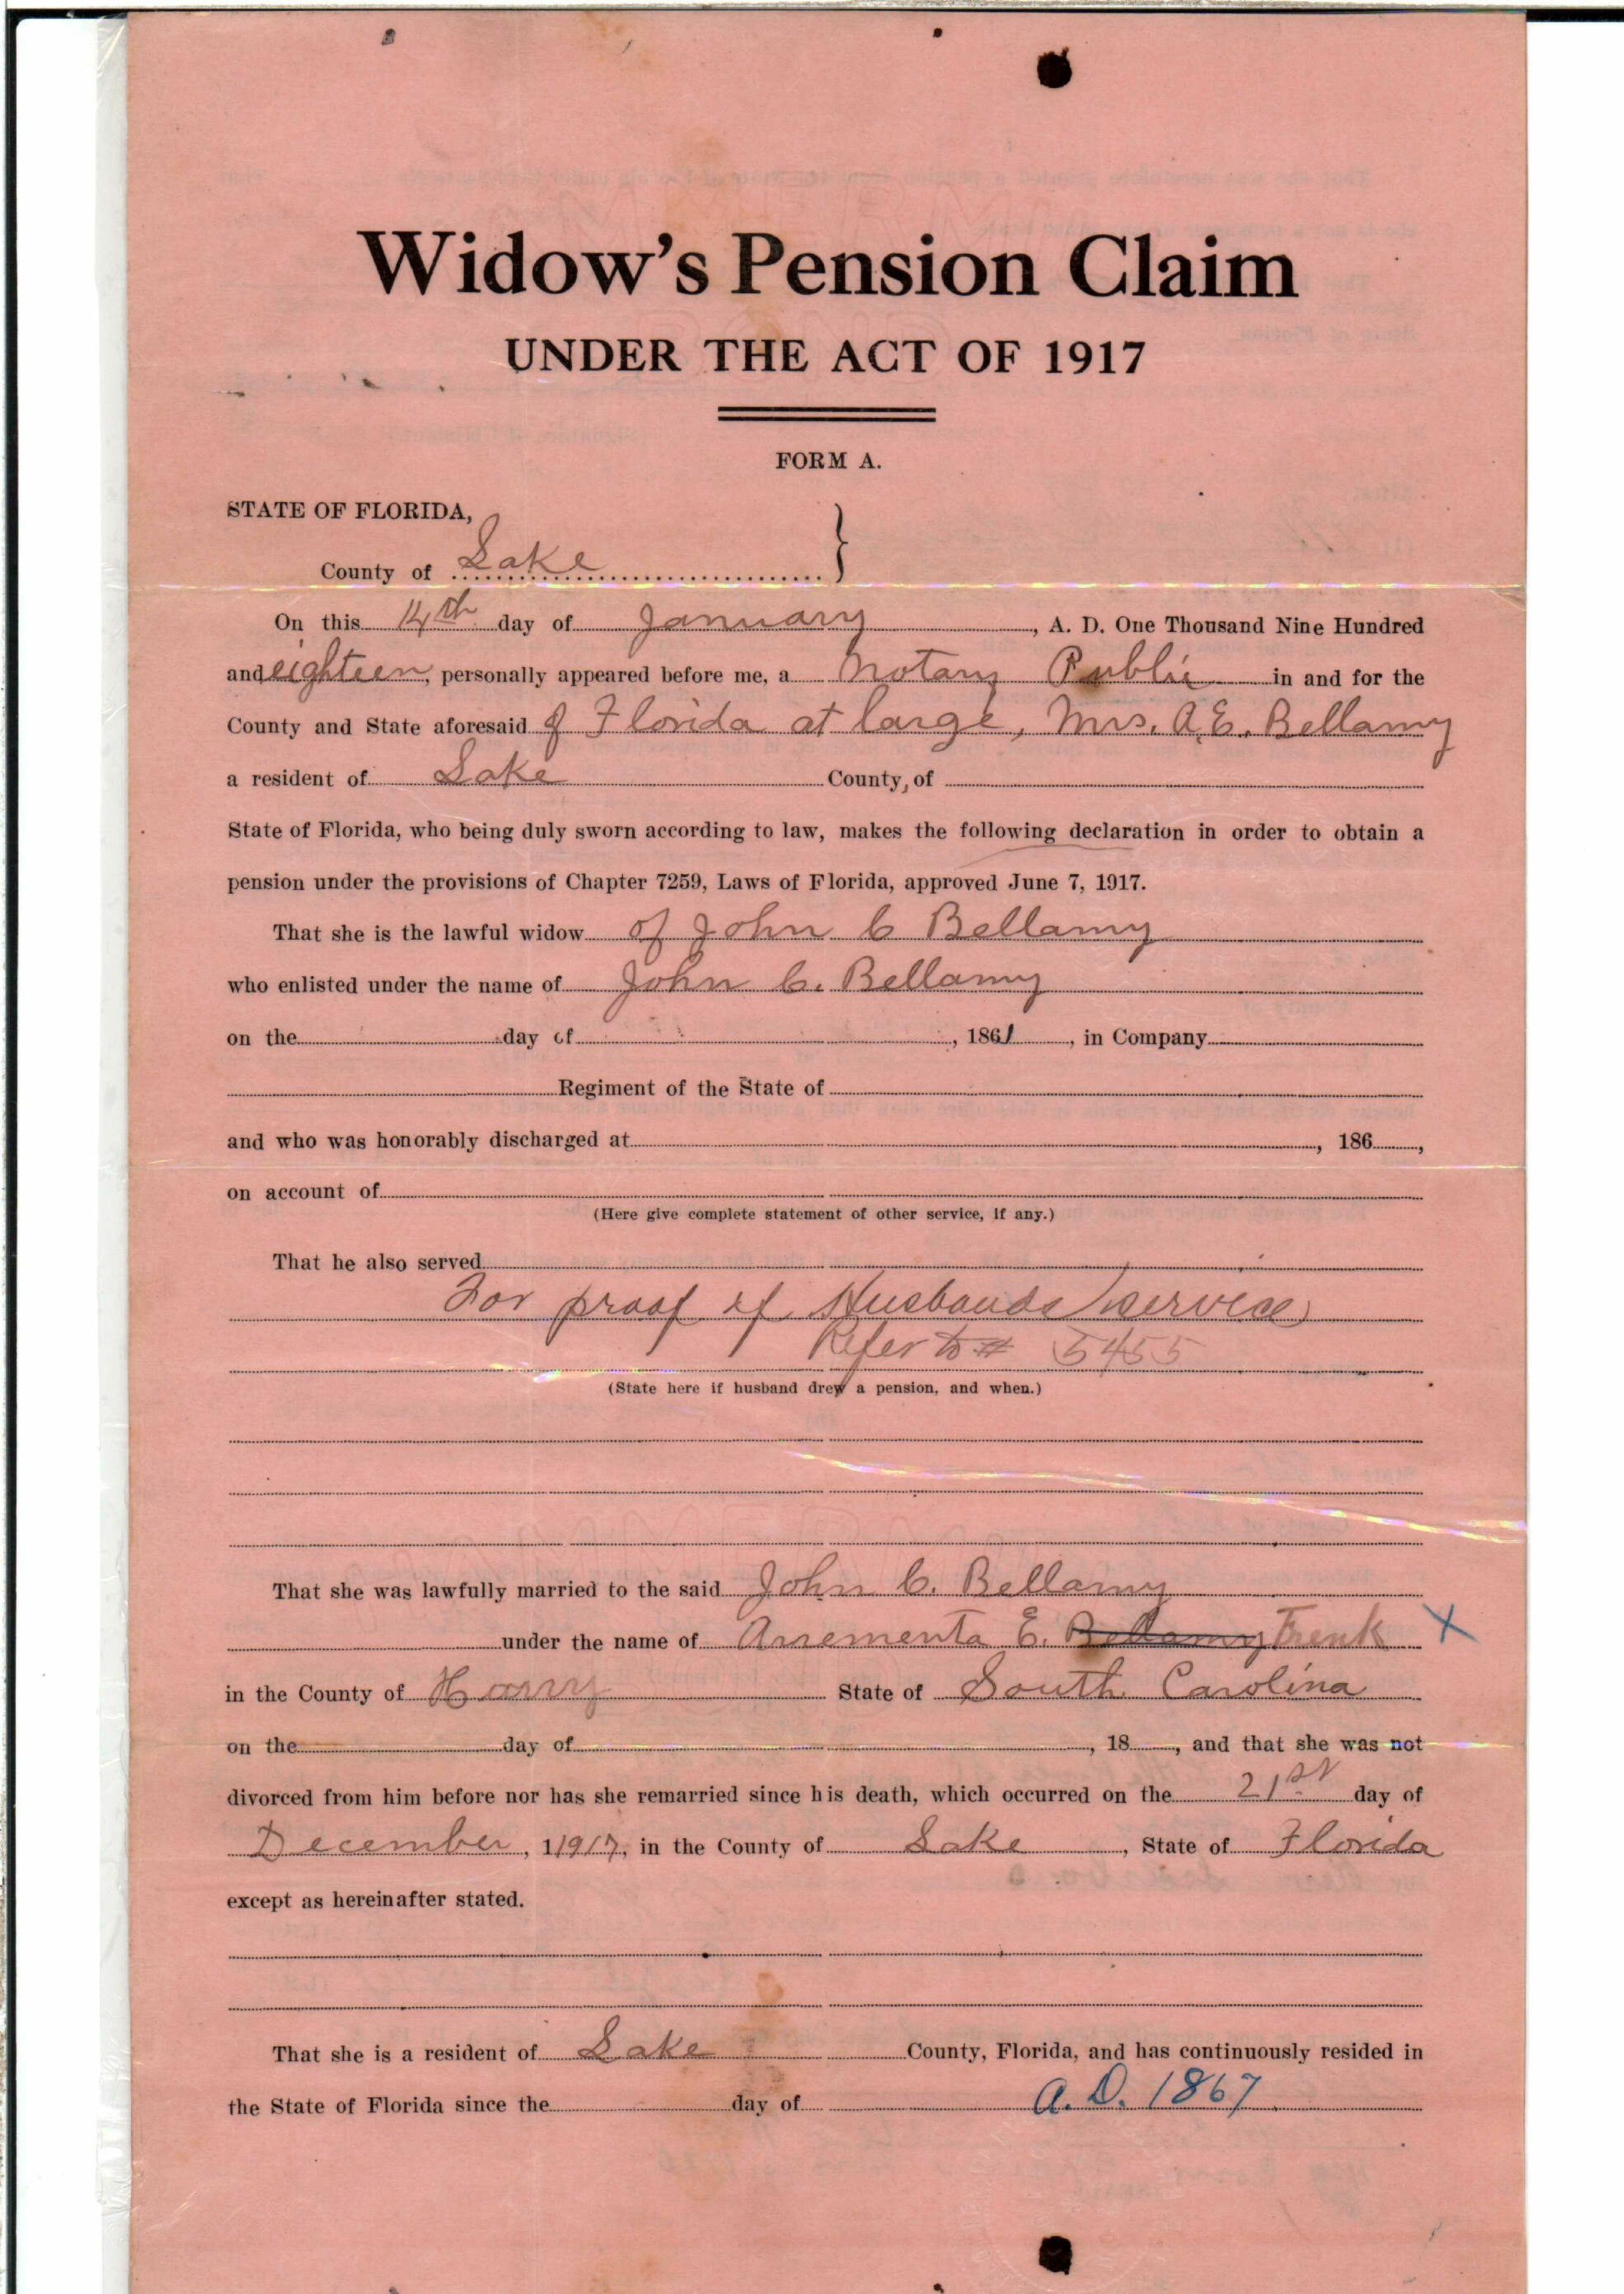 Widow's Pension Claim
UNDER THE ACT OF 1917
FORM A.
STATE OF FLORIDA,
County of Lake
On this 14th day of January, A. D. One Thousand Nine Hundred
and eighteen, personally appeared before me, a Notary Public in and for the
County and State aforesaid of Florida at large, Mrs. A. E. Bellamy
a resident of Lake County, of
State of Florida, who being duly sworn according to law, makes the following declaration in order to obtain a
pension under the provisions of Chapter 7259, Laws of Florida, approved June 7, 1917.
That she is the lawful widow of John C Bellamy
who enlisted under the name of John C. Bellamy
on the day of , 1861, in Company
Regiment of the State of
and who was honorably discharged at , 186 ,
on account of
(Here give complete statement of other service, if any.)
That he also served
For proof of Husbands service
Refer to # 5455
(State here if husband drew a pension, and when.)
That she was lawfully married to the said John C. Bellamy
under the name of Arrementa E. Bellamy Frink X
in the County of Horry State of South Carolina
on the day of , 18 , and that she was not
divorced from him before nor has she remarried since his death, which occurred on the 21st day of
December, 1917, in the County of Lake, State of Florida
except as hereinafter stated.
That she is a resident of Lake County, Florida, and has continuously resided in
the State of Florida since the day of A. D. 1867